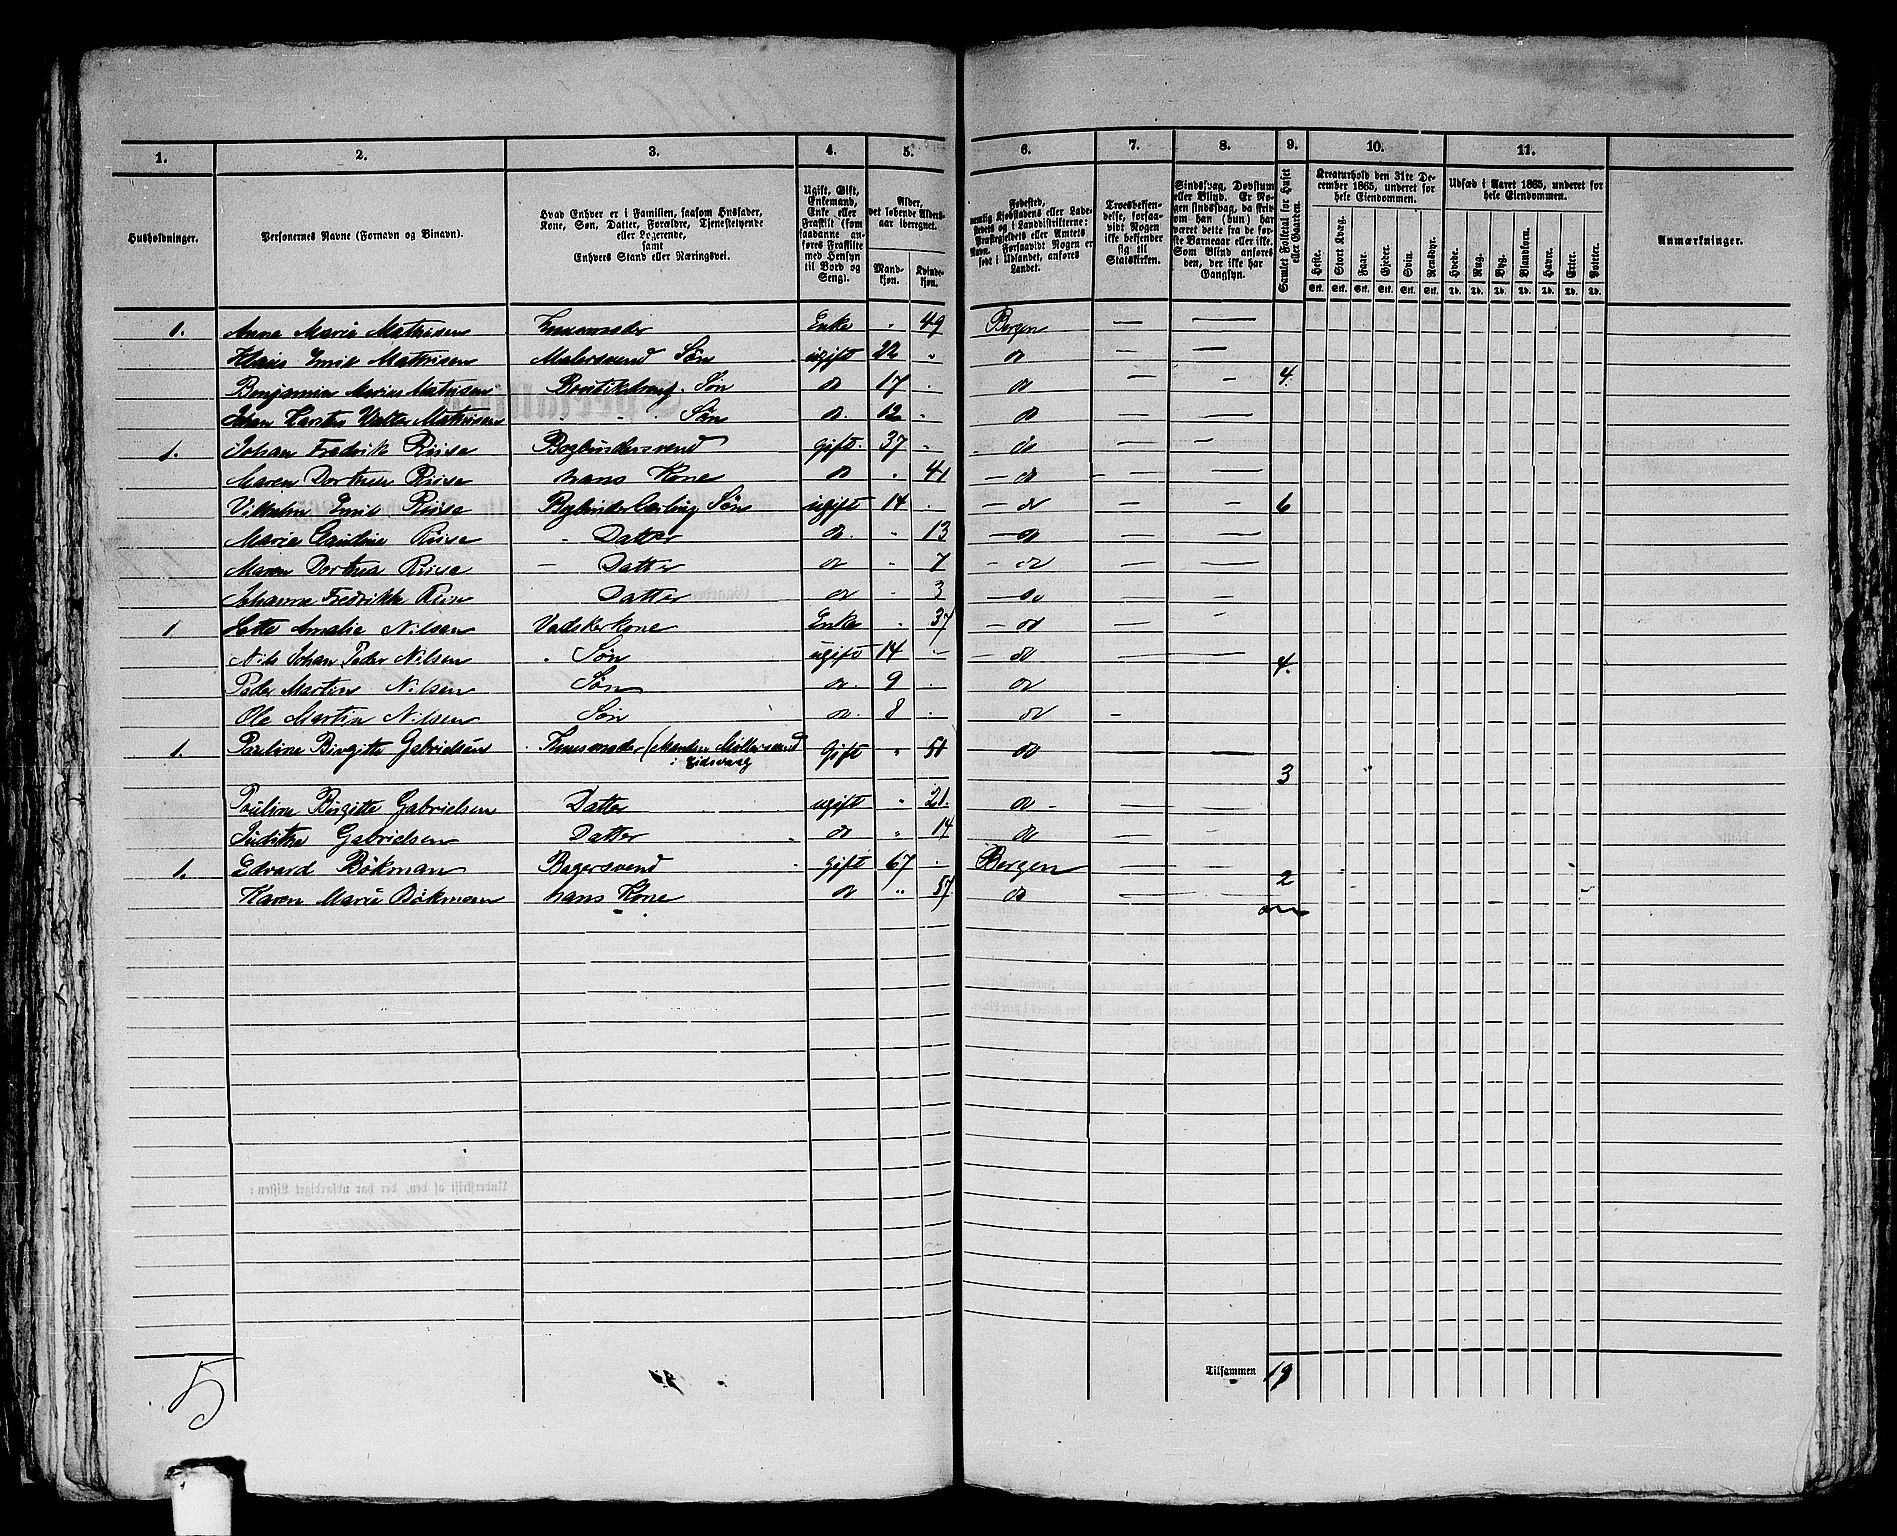 1. 2. 3. 4. 5. 6. 7. 8. 9. 10. 11.
Husholdninger.
Personernes Navne (Fornavn og Binavn).
Hvad Enhver er i Familien, saasom Husfader,
Kone, Søn, Datter, Forældre, Tjenestetyende
eller Logerende,
samt
Enhvers Stand eller Næringsvei.
Ugift, Gift,
Enkemand,
Enke eller
Fraskilt (som
saadanne an-
føres Fraskilte
med Hensyn
til Bord og
Seng).
Alder,
det løbende Alders-
aar iberegnet.
Mand-
kjøn.
Kvinde-
kjøn.
Fødested,
nemlig Kjøbstadens eller Lade-
stedets og i Landdistrikterne:
Præstegjeldets eller Amtets
Navn. Forsaavidt Nogen er
født i Udlandet, anføres
Landet.
Troesbekjen-
delse, forsaa-
vidt Nogen
ikke bekjender
sig til
Statskirken.
Sindssvag, Døvstum
eller Blind. Er No-
gen sindssvag, da hvis
om han (hun) har
været dette fra de før-
ste Barneaar eller ikke.
Som Blind anføres
den, der ikke har
Gangsyn.
Samlet Folketal for Huset
eller Gaarden.
Kreaturhold den 31te De-
cember 1865, underet for
hele Eiendommen.
Heste. Stort Kvæg. Faar. Gjeder. Svin. Rensdyr.
Stk. Stk. Stk. Stk. Stk. Stk.
Udsæd i Aaret 1865, underet for
hele Eiendommen.
Hvede. Rug. Byg. Blandkorn. Havre. Erter. Poteter.
Td. Td. Td. Td. Td. Td. Td.
Anmærkninger.
1. Anna Maria Mathisen Huusmoder Enke " 49 Bergen — —
Klaus Emil Mathisen Malersvend Søn ugift 22 " do — —
Benjamin Marius Mathisen Søn do 17 . do — — 4.
Johan Mathisen Søn do. 12 . do — —
1. Johan Fredrik Riise Bogbindersvend gift. 37 . do — —
Maren Dorthea Riise hans Kone do " 41 do — —
Vilhelm Emil Riise Bogbinderlærling Søn ugift 14 . do — — 6
Marie Riise " Datter do. " 13 do — —
Maren Dorthea Riise — Datter do " 7 do — —
Johanna Fredrikke Riise Datter do " 3 do — —
1 Amalie Nilsen Vadskerkone Enke " 37 do — —
Nils Johan Peder Nilsen " Søn ugift 14 — do — — 4.
Peder Martin Nilsen Søn do. 9 . do
Ole Martin Nilsen Søn do. 8 . do -
1. Pauline Birgitte Gabrielsen Huusmoder (Manden Møllersvend Gift " 51 do — —
i Eidsvaag 3
Pauline Birgitte Gabrielsen Datter ugift " 21. do — —
Judithe Gabrielsen Datter do " 14 do — —
1. Edvard Bøkman Bagersvend Gift 67 . Bergen — — 2
Karen Marie Bøkman hans Kone do " 57 do — —
5
Tilsammen 19